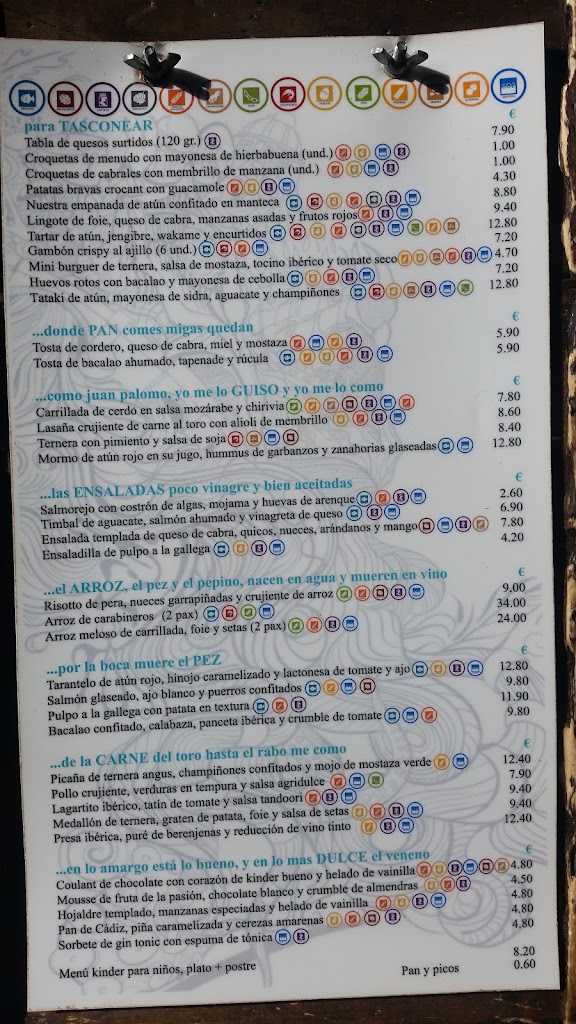 €
para TASCONEAR
Tabla de quesos surtidos (120 gr.) 7.90
Croquetas de menudo con mayonesa de hierbabuena (und.) 1.00
Croquetas de cabrales con membrillo de manzana (und.) 1.00
Patatas bravas crocant con guacamole 4.30
Nuestra empanada de atún confitado en manteca 8.80
Lingote de foie, queso de cabra, manzanas asadas y frutos rojos 9.40
Tartar de atún, jengibre, wakame y encurtidos 12.80
Gambón crispy al ajillo (6 und.) 7.20
Mini burguer de ternera, salsa de mostaza, tocino ibérico y tomate seco 4.70
Huevos rotos con bacalao y mayonesa de cebolla 7.20
Tataki de atún, mayonesa de sidra, aguacate y champiñones 12.80
€
...donde PAN comes migas quedan
Tosta de cordero, queso de cabra, miel y mostaza 5.90
Tosta de bacalao ahumado, tapenade y rúcula 5.90
€
...como juan palomo, yo me lo GUISO y yo me lo como
Carrillada de cerdo en salsa mozárabe y chirivia 7.80
Lasaña crujiente de carne al toro con alioli de membrillo 8.60
Ternera con pimiento y salsa de soja 8.40
Mormo de atún rojo en su jugo, hummus de garbanzos y zanahorias glaseadas 12.80
€
...las ENSALADAS poco vinagre y bien aceitadas
Salmorejo con costrón de algas, mojama y huevas de arenque 2.60
Timbal de aguacate, salmón ahumado y vinagreta de queso 6.90
Ensalada templada de queso de cabra, quicos, nueces, arándanos y mango 7.80
Ensaladilla de pulpo a la gallega 4.20
€
...el ARROZ, el pez y el pepino, nacen en agua y mueren en vino
Risotto de pera, nueces garrapiñadas y crujiente de arroz 9.00
Arroz de carabineros (2 pax) 34.00
Arroz meloso de carrillada, foie y setas (2 pax) 24.00
€
...por la boca muere el PEZ
Tarantelo de atún rojo, hinojo caramelizado y lactonesa de tomate y ajo 12.80
Salmón glaseado, ajo blanco y puerros confitados 9.80
Pulpo a la gallega con patata en textura 11.90
Bacalao confitado, calabaza, panceta ibérica y crumble de tomate 9.80
€
...de la CARNE del toro hasta el rabo me como
Picaña de ternera angus, champiñones confitados y mojo de mostaza verde 12.40
Pollo crujiente, verduras en tempura y salsa agridulce 7.90
Lagartito ibérico, tatín de tomate y salsa tandoori 9.40
Medallón de ternera, graten de patata, foie y salsa de setas 9.40
Presa ibérica, puré de berenjenas y reducción de vino tinto 12.40
€
...en lo amargo está lo bueno, y en lo mas DULCE el veneno
Coulant de chocolate con corazón de kinder bueno y helado de vainilla 4.80
Mousse de fruta de la pasión, chocolate blanco y crumble de almendras 4.50
Hojaldre templado, manzanas especiadas y helado de vainilla 4.80
Pan de Cádiz, piña caramelizada y cerezas amarenas 4.80
Sorbete de gin tonic con espuma de tónica 4.80
8.20
Menú kinder para niños, plato + postre Pan y picos 0.60